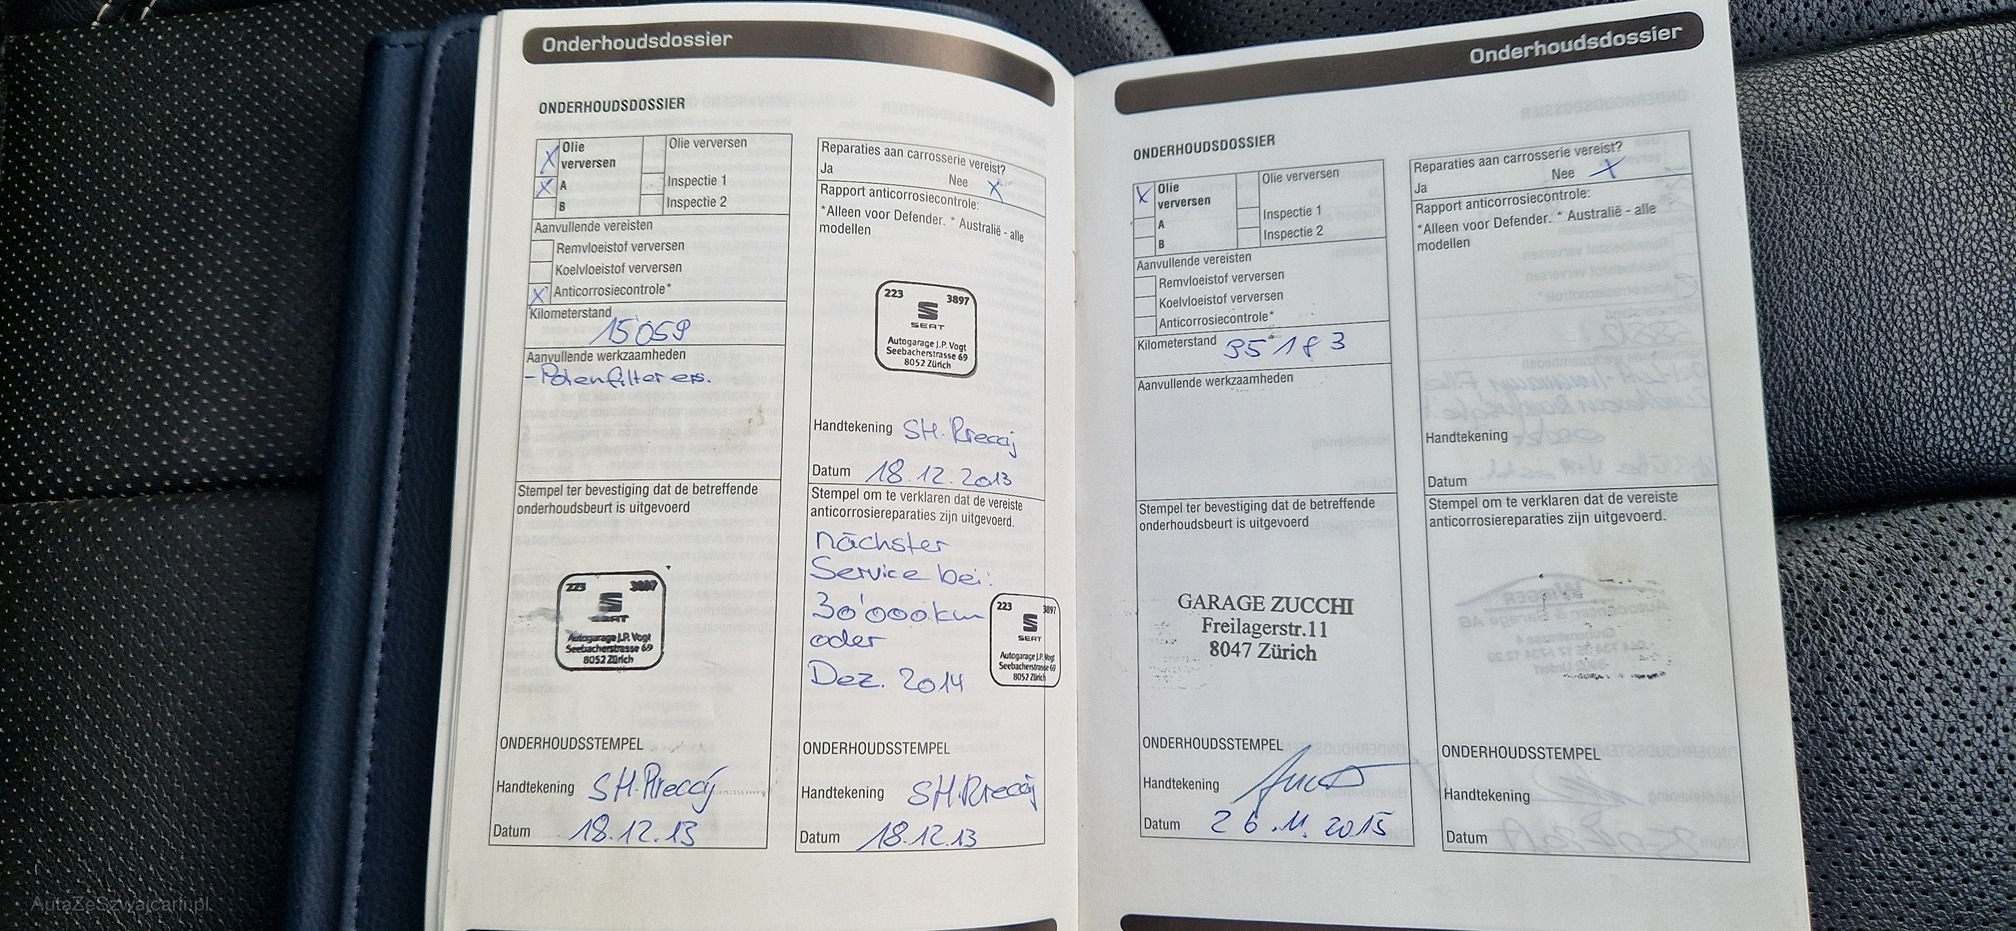 Onderhoudsdossier
ONDERHOUDSDOSSIER
X Olie verversen
Olie verversen
X A
Inspectie 1
B
Inspectie 2
Aanvullende vereisten
Remvloeistof verversen
Koelvloeistof verversen
X Anticorrosiecontrole*
Kilometerstand
15059
Aanvullende werkzaamheden
- Polenfilter ers.
Stempel ter bevestiging dat de betreffende
onderhoudsbeurt is uitgevoerd
223 3897
SEAT
Autogarage J.P. Vogt
Seebacherstrasse 69
8052 Zürich
ONDERHOUDSSTEMPEL
Handtekening
Datum 18.12.13
Reparaties aan carrosserie vereist?
Ja Nee X
Rapport anticorrosiecontrole:
*Alleen voor Defender. * Australië - alle
modellen
223 3897
SEAT
Autogarage J.P. Vogt
Seebacherstrasse 69
8052 Zürich
Handtekening
Datum 18.12.2013
Stempel om te verklaren dat de vereiste
anticorrosiereparaties zijn uitgevoerd.
nächster
Service bei:
30'000km
oder
Dez. 2014
223 3897
SEAT
Autogarage J.P. Vogt
Seebacherstrasse 69
8052 Zürich
ONDERHOUDSSTEMPEL
Handtekening
Datum 18.12.13
Onderhoudsdossier
ONDERHOUDSDOSSIER
X Olie
verversen
Olie verversen
A
Inspectie 1
B
Inspectie 2
Aanvullende vereisten
Remvloeistof verversen
Koelvloeistof verversen
Anticorrosiecontrole*
Kilometerstand 35183
Aanvullende werkzaamheden
Stempel ter bevestiging dat de betreffende
onderhoudsbeurt is uitgevoerd
GARAGE ZUCCHI
Freilagerstr.11
8047 Zürich
ONDERHOUDSSTEMPEL
Handtekening
Datum 26.11.2015
Reparaties aan carrosserie vereist?
Ja Nee X
Rapport anticorrosiecontrole:
*Alleen voor Defender. * Australië - alle
modellen
Handtekening
Datum
Stempel om te verklaren dat de vereiste
anticorrosiereparaties zijn uitgevoerd.
ONDERHOUDSSTEMPEL
Handtekening
Datum
AutaZeSzwajcarii.pl